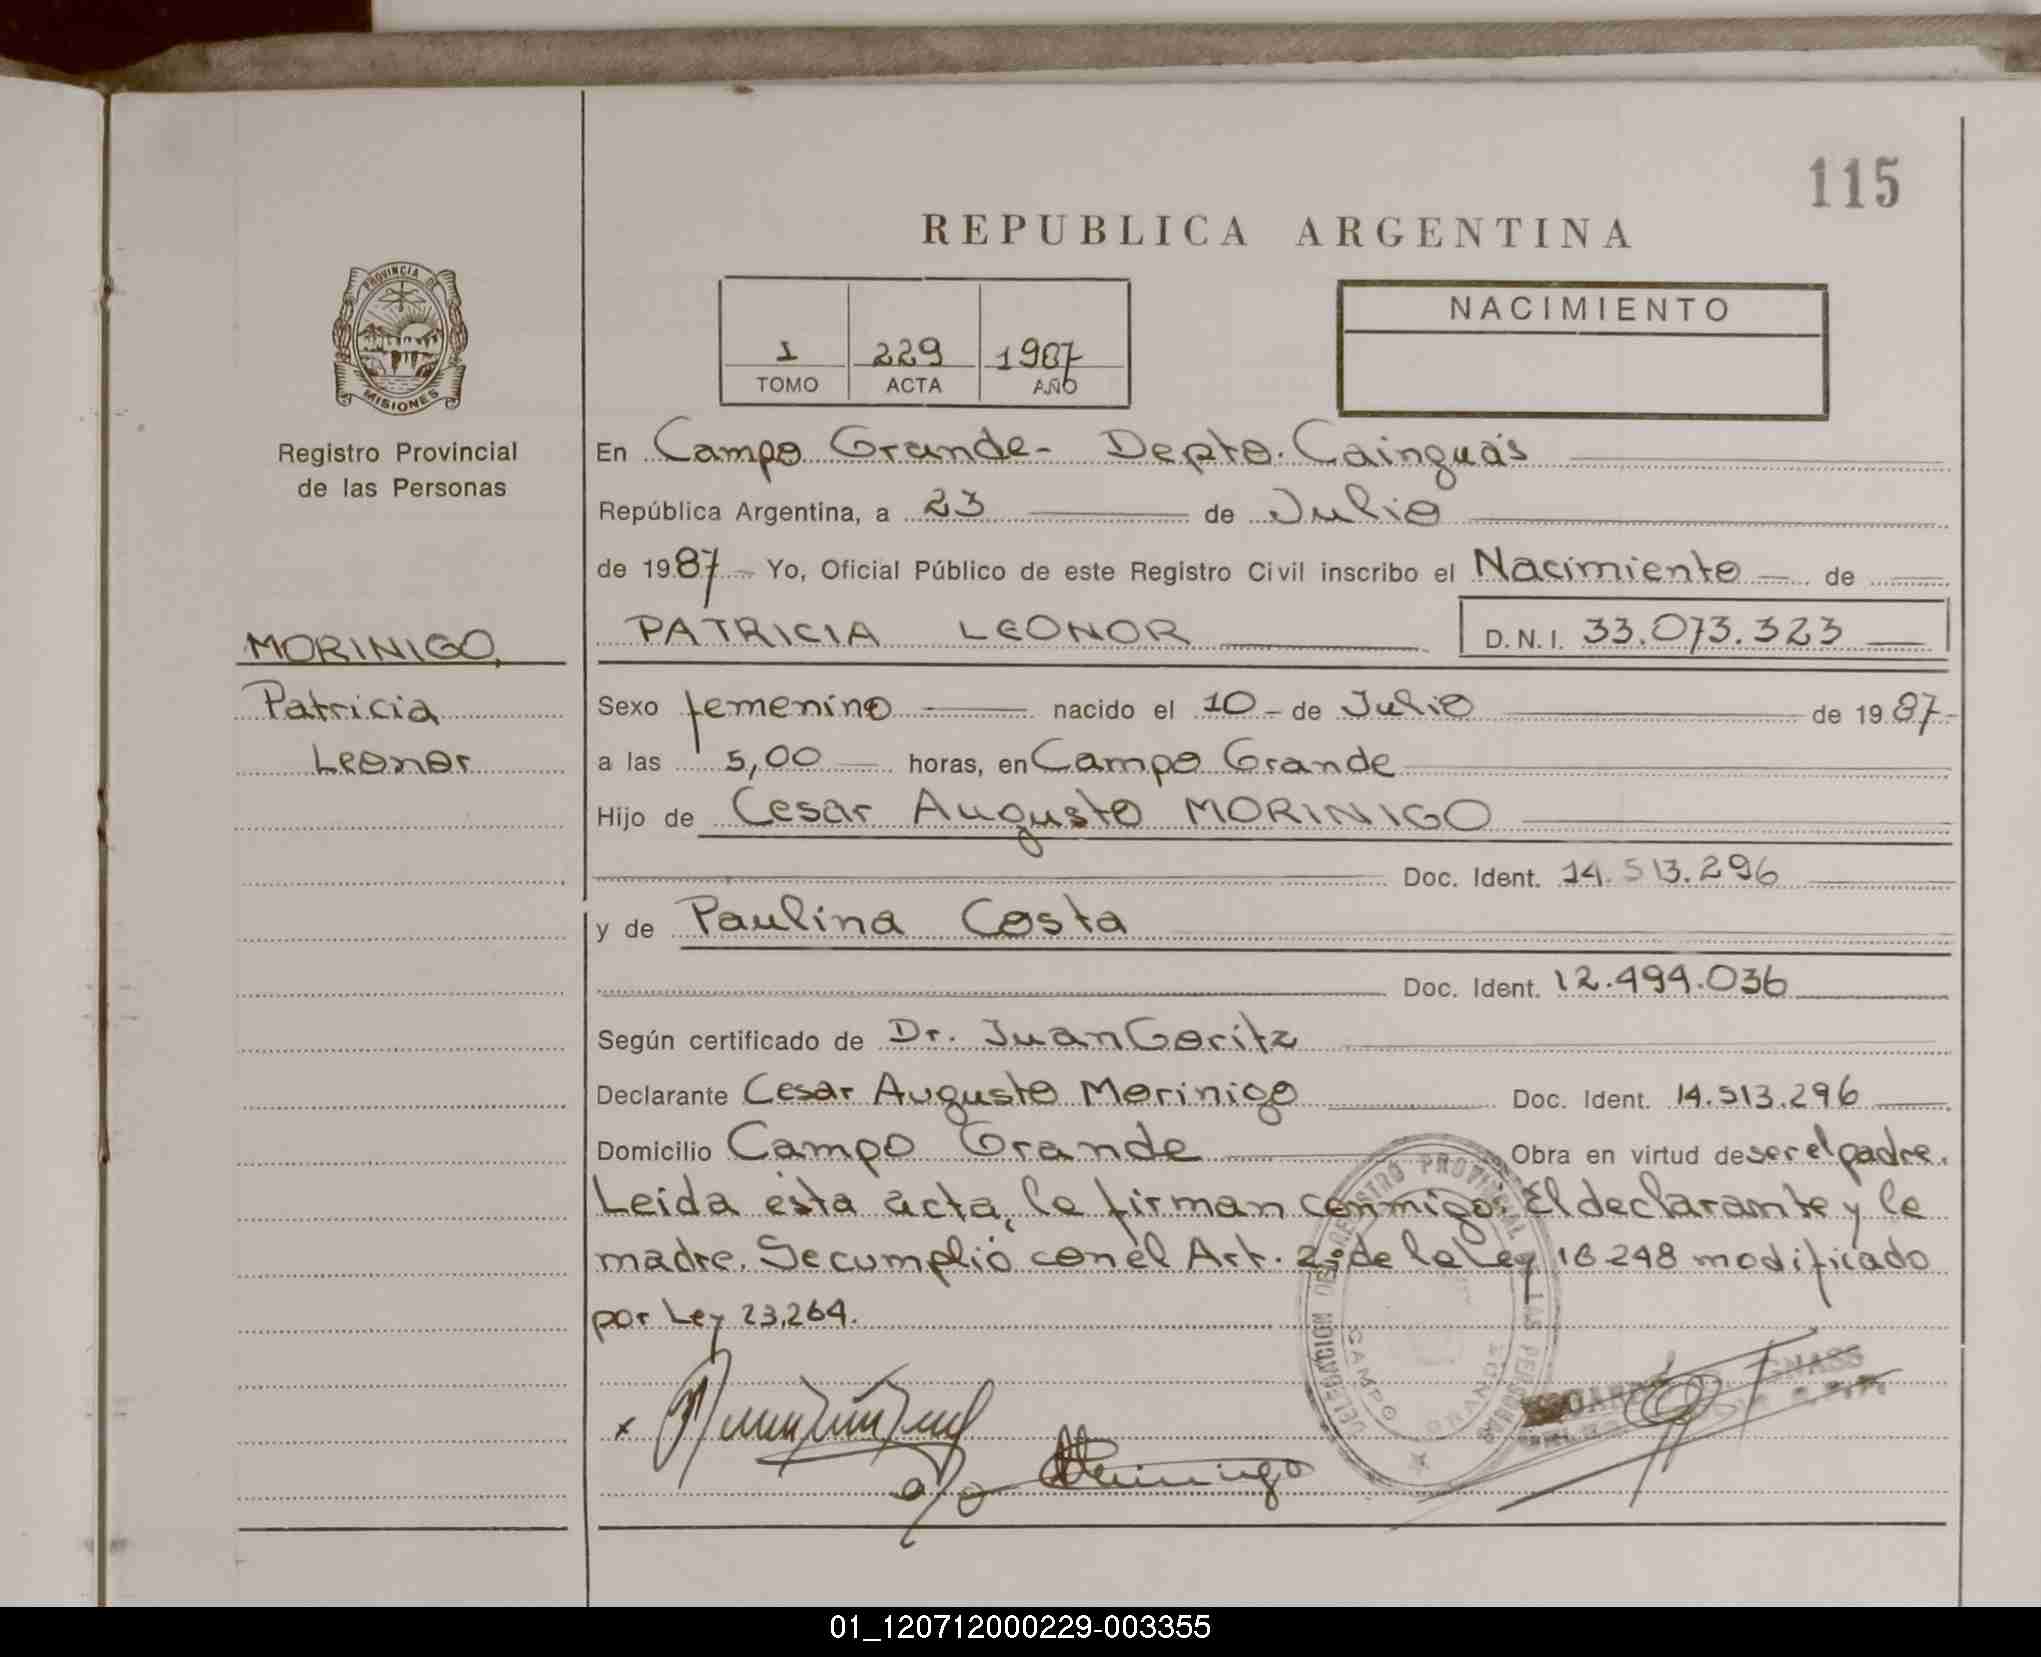 115
REPUBLICA ARGENTINA
PROVINCIA DE
MISIONES
Registro Provincial
de las Personas
1 229 1987
TOMO ACTA AÑO
NACIMIENTO
En Campo Grande- Depto. Cainguás
República Argentina, a 23 de Julio
de 1987 Yo, Oficial Público de este Registro Civil inscribo el Nacimiento de
MORINIGO,
Patricia
Leonor
PATRICIA LEONOR D.N.I. 33.073.323
Sexo femenino nacido el 10 - de Julio de 1987-
a las 5,00 horas, en Campo Grande
Hijo de Cesar Augusto MORINIGO
Doc. Ident. 14.513.296
y de Paulina Costa
Doc. Ident. 12.494.036
Según certificado de Dr. Juan Goritz
Declarante Cesar Augusto Morinigo Doc. Ident. 14.513.296
Domicilio Campo Grande Obra en virtud de ser el padre.
Leida ésta acta, la firman conmigo: El declarante y la
madre. Se cumplió con el Art. 2: de la Ley 18248 modificado
por Ley 23,264.
DELEGACION DEL REGISTRO PROVINCIAL DE LAS PERSONAS
CAMPO GRANDE
01_120712000229-003355